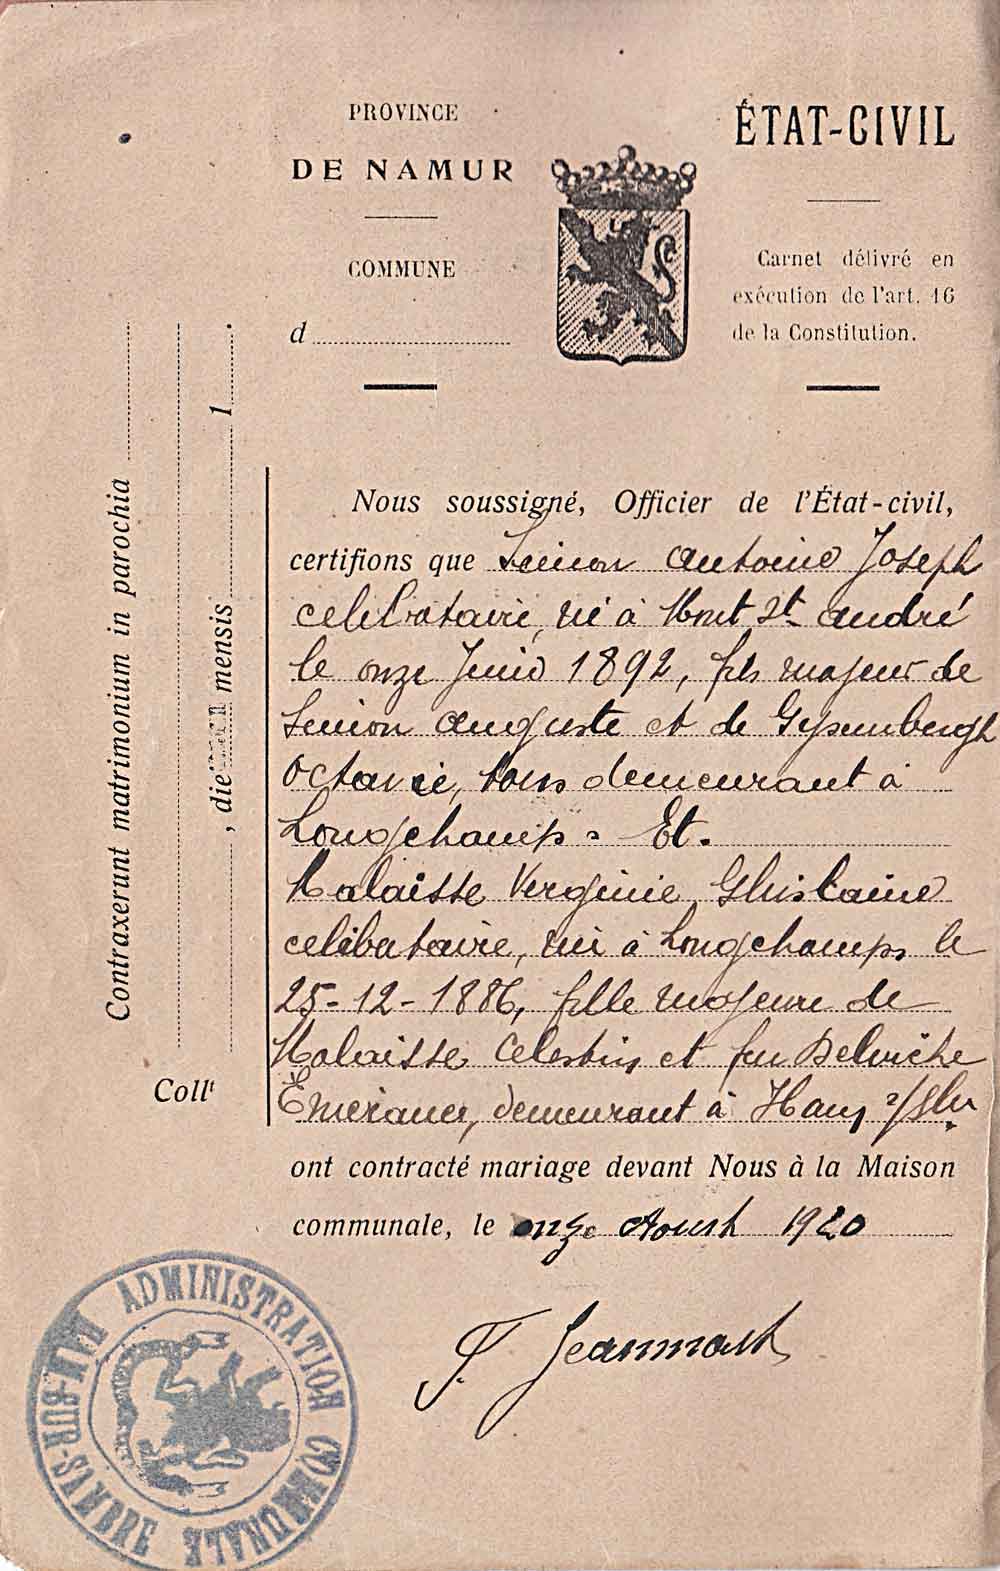 PROVINCE
DE NAMUR
COMMUNE
d
ÉTAT-CIVIL
Carnet délivré en
exécution de l'art. 16
de la Constitution.
Contraxerunt matrimonium in parochia
, die mensis 1
Coll^t
Nous soussigné, Officier de l'État-civil,
certifions que Simon Antoine Joseph
célibataire, né à Mont St André
le onze Juin 1892, fils majeur de
Simon Auguste et de Gysembergh
Octavie, tous demeurant à
Longchamps = Et.
Malaisse Verginie Ghislaine
celibataire, née à Longchamps le
25-12-1886, fille majeure de
Malaisse Celestin et feu Delviche
Emerance, demeurant à Ham s/Sbr
ont contracté mariage devant Nous à la Maison
communale, le onze Aoust 1920
F. Jeanmart
ADMINISTRATION COMMUNALE
HAM-SUR-SAMBRE